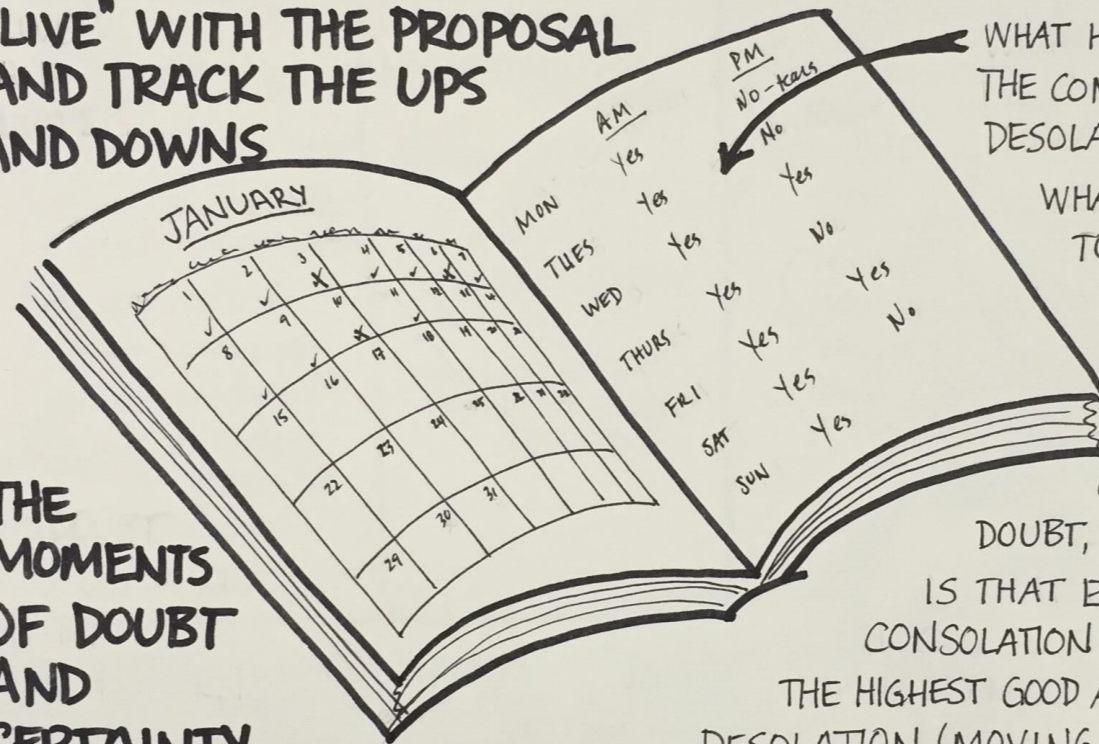 LIVE" WITH THE PROPOSAL
AND TRACK THE UPS
AND DOWNS
JANUARY
1 2 3 4 5 6 7
8 9 10 11
15 16 17 18 19 20 21
22 23 24 25
29 30 31
AM PM
MON Yes No-tears
TUES Yes No
WED Yes Yes
THURS Yes No
FRI Yes Yes
SAT Yes No
SUN Yes
WHAT H
THE CON
DESOLA
WHA
TO
THE
MOMENTS
OF DOUBT
AND
CERTAINTY
DOUBT,
IS THAT E
CONSOLATION
THE HIGHEST GOOD A
DESOLATION (MOVING